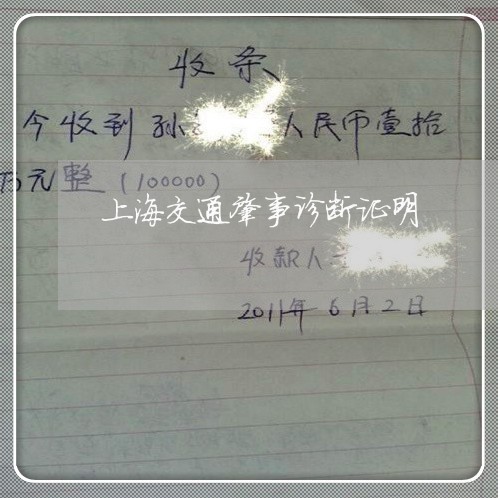 收条
今收到孙 人民币壹拾
万元整（100000）
上海交通肇事诊断证明
收款人
2011年6月2日